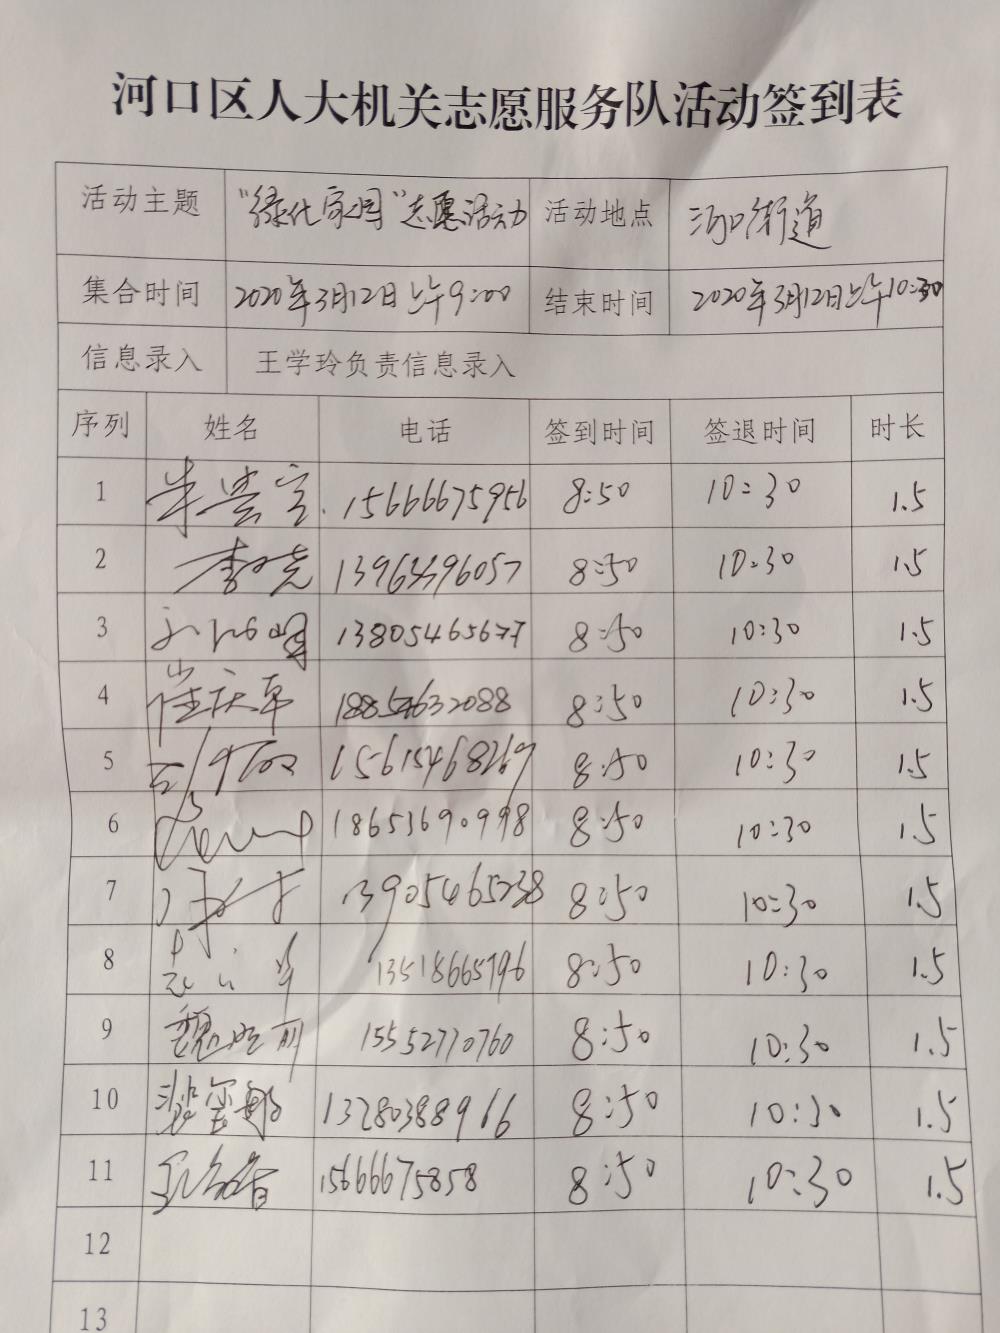 河口区人大机关志愿服务队活动签到表
活动主题 "绿化家园"志愿活动 活动地点 河口街道
集合时间 2020年3月12日上午9:00 结束时间 2020年3月12日上午10:30
信息录入 王学玲负责信息录入
序列 姓名 电话 签到时间 签退时间 时长
1 15666675956 8:50 10:30 1.5
2 李 8:50 10:30 1.5
3 13805465677 8:50 10:30 1.5
4 崔庆军 18854632088 8:50 10:30 1.5
5 15615468269 8:50 10:30 1.5
6 18653690998 8:50 10:30 1.5
7 13905465238 8:50 10:30 1.5
8 13518665796 8:50 10:30 1.5
9 魏 15552770760 8:50 10:30 1.5
10 13280388966 8:50 10:30 1.5
11 15666675858 8:50 10:30 1.5
12
13